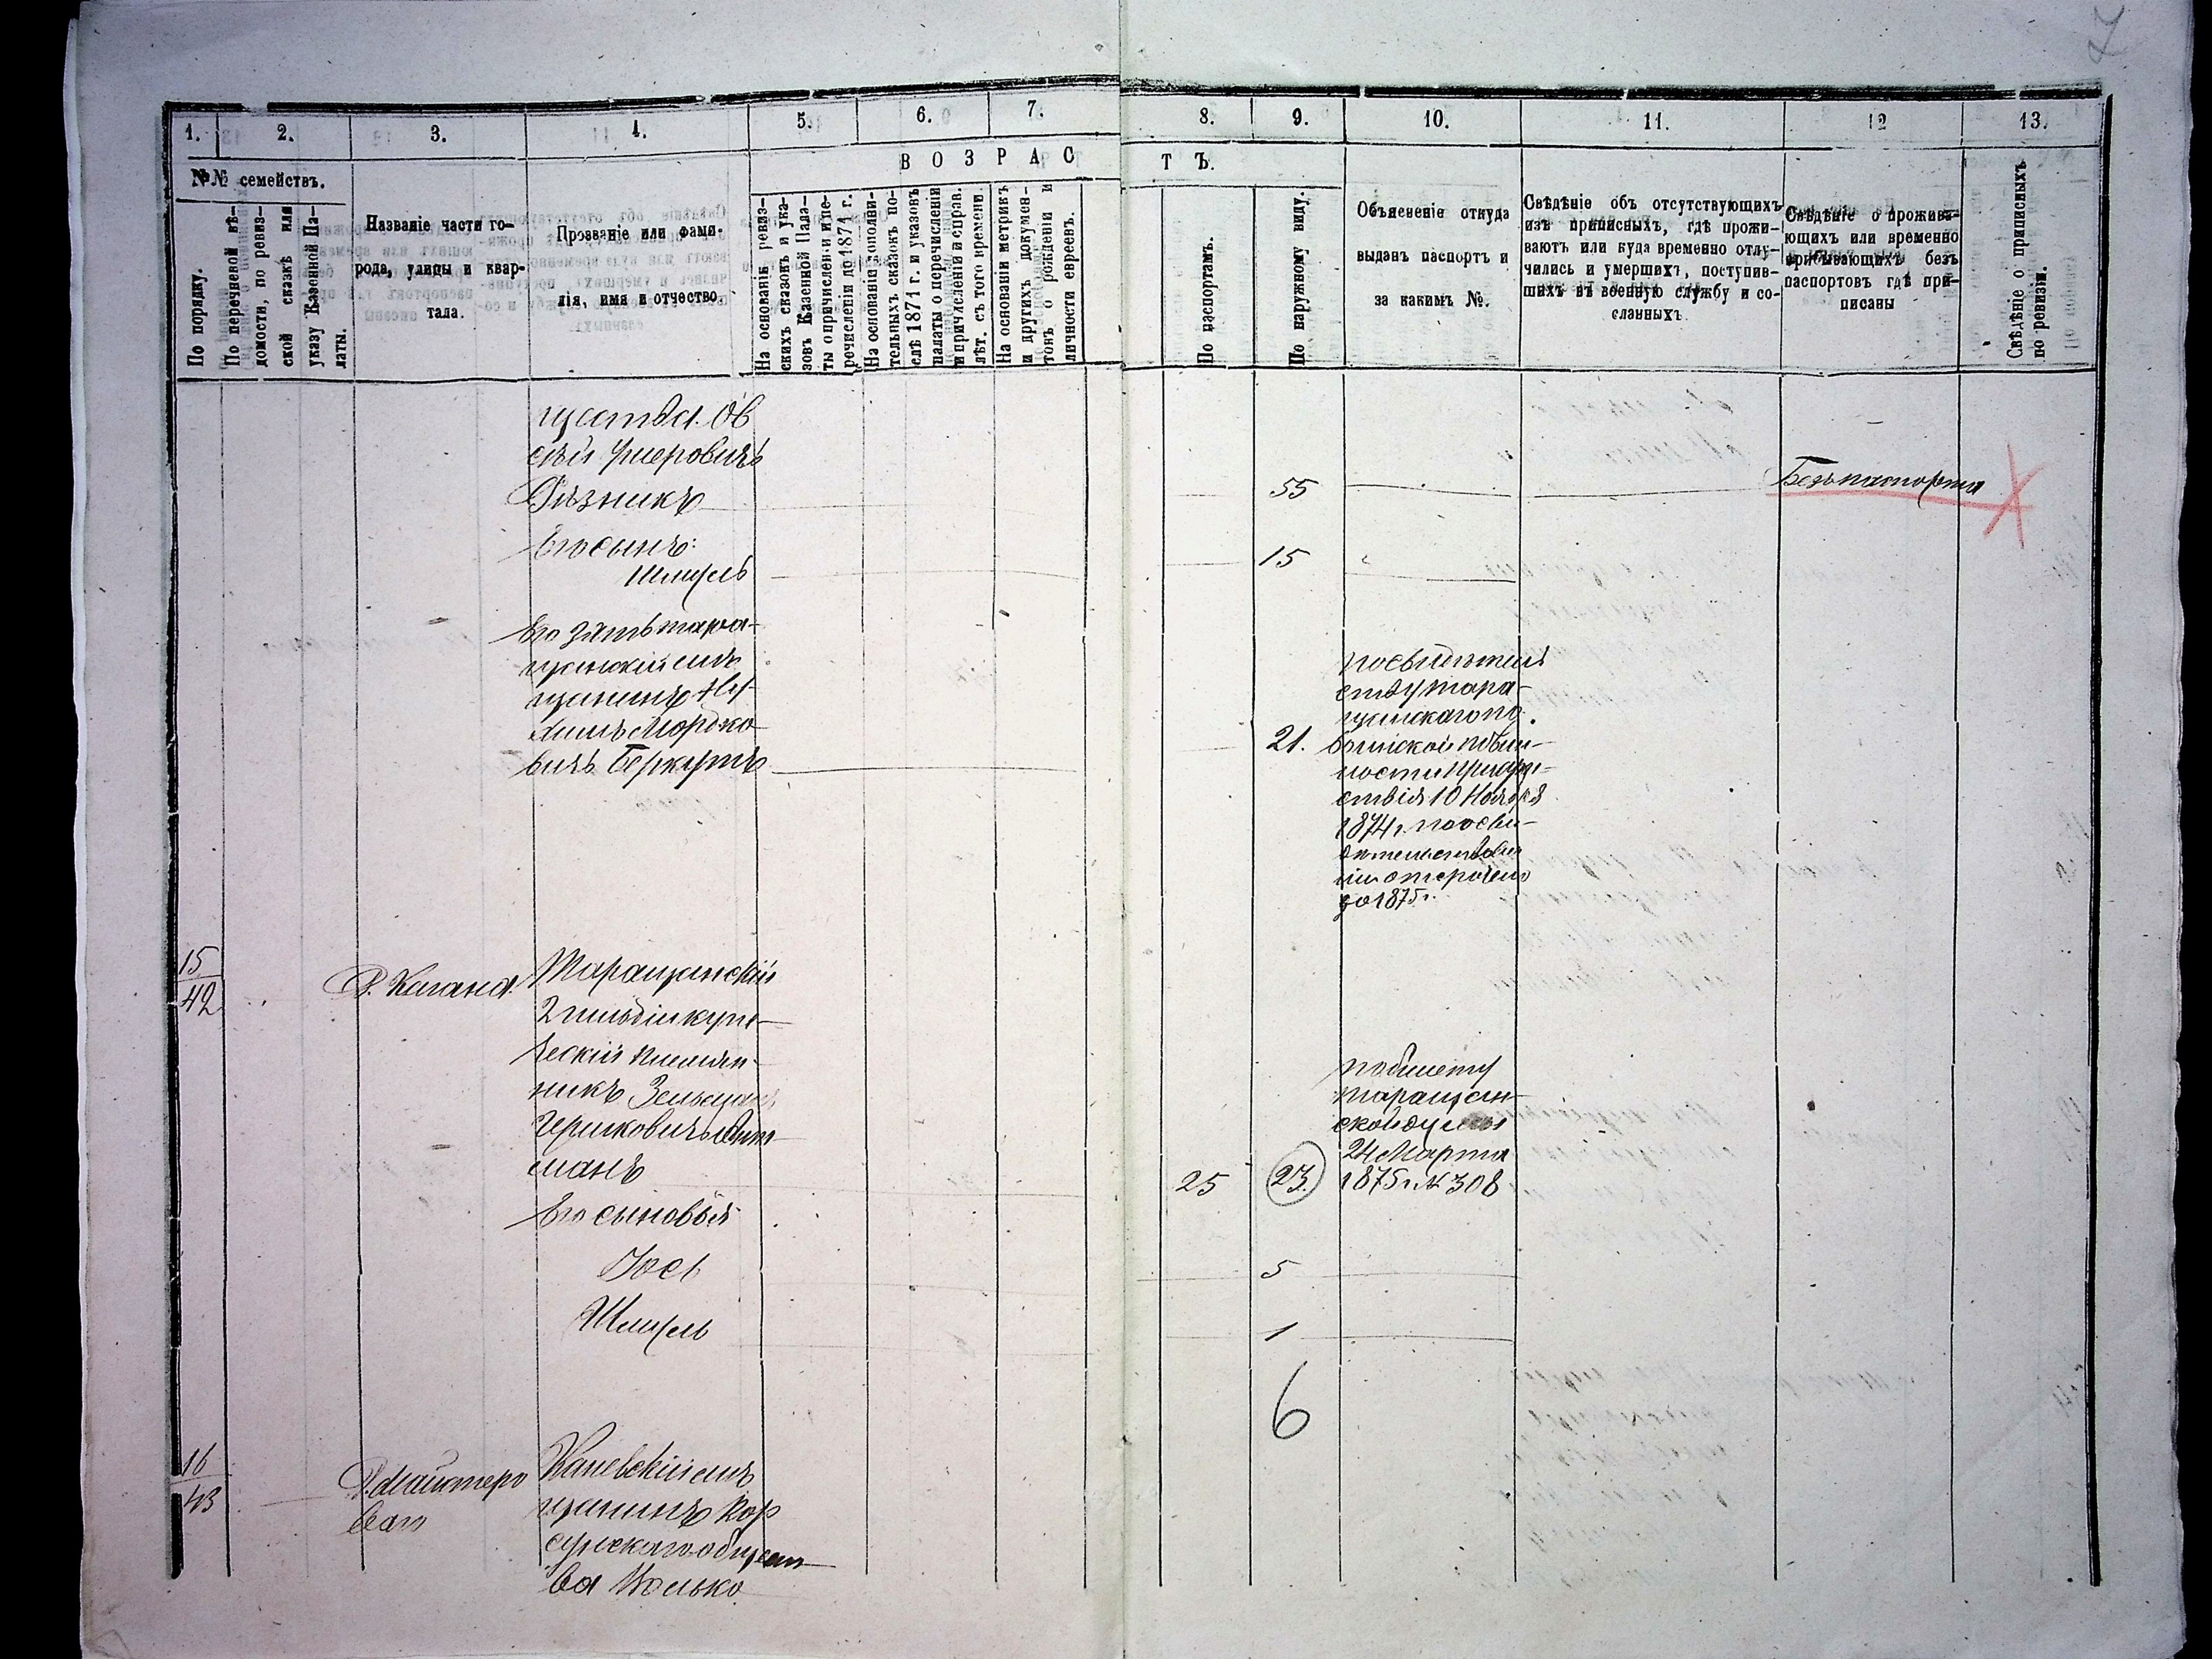 7
1. 2. 3. 4. 5. 6. 7. 8. 9. 10. 11. 12 13.
№№ семействъ.
По порядку.
По перечневой вѣ-
домости, по ревиз-
ской сказкѣ или
указу Казенной Па-
латы.
Названіе части го-
рода, улицы и квар-
тала.
Прозваніе или фами-
лія, имя и отчество.
ВОЗРАСТЪ.
На основаніи ревиз-
скихъ сказокъ и ука-
зовъ Казенной Пала-
ты о причисленіи и пе-
речисленіи до 1871 г.
На основаніи дополни-
тельныхъ сказокъ по-
слѣ 1871 г. и указовъ
палаты о перечисленіи
и причисленіи и справ.
лѣт. съ того времени.
На основаніи метрикъ
и другихъ докумен-
товъ о рожденіи и
личности евреевъ.
По паспортамъ.
По наружному виду.
Объясненіе откуда
выданъ паспортъ и
за какимъ №.
Свѣдѣніе объ отсутствующихъ
изъ приписныхъ, гдѣ прожи-
ваютъ или куда временно отлу-
чились и умершихъ, поступив-
шихъ въ военную службу и со-
сланныхъ
Свѣдѣніе о прожива-
ющихъ или временно
пребывающихъ безъ
паспортовъ гдѣ при-
писаны
Свѣдѣніе о приписныхъ
по ревизіи.
щества. Ов
сѣй Ушеровичъ
Рѣзникъ 55 Безъ паспорта
Его сынъ:
Шмуль 15
Его зять тара-
щанскій мѣ
щанинъ
Мордко
вичъ Беркунъ 21.
по свидѣтель
ству тара-
щанскаго по
воинской повин-
ности присут-
ствія 10 Ноября
1874 г. по осви-
дѣтельствова
ніи отсрочено
до 1875 г.
15
42
Д. Кагана.
Таращанскій
2 гильдіи купе-
ческій племян-
никъ Зельман
Гершковичъ
манъ 25 23.
по билету
таращан-
ской думы
24 Марта
1875 г. № 308
Его сыновья
Іось 5
Шмуль 1
6
16
43
Д. Майстеро
ваго
Каневскій мѣ
щанинъ Кор
сунскаго общест
ва Волько